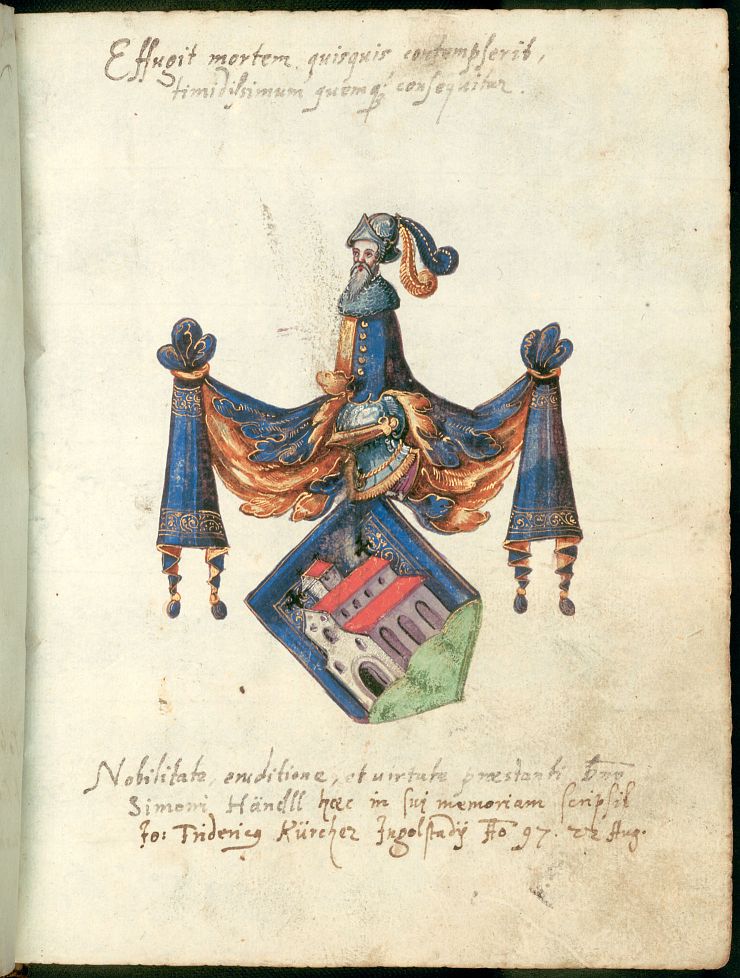 Effugit mortem, quisquis contempserit,
timidissimum quemq; consequitur.
Nobilitate, eruditione, et virtute præstanti Dno
Simoni Händll hæc in sui memoriam scripsit
Jo: Fridericus Kürcher Ingolstadij Ao 97. 22 Aug.